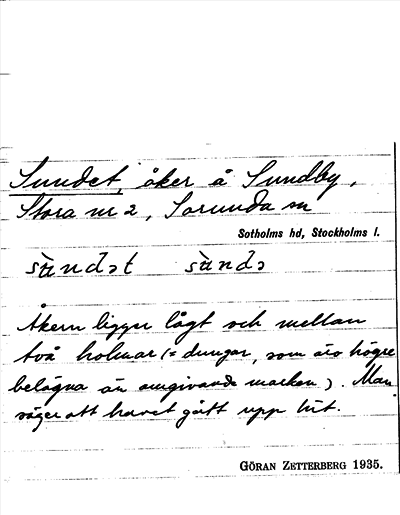 Sundet, åker å Sundby,
Stora nr 2, Sorunda sn
Sotholms hd, Stockholms l.
Åkern ligger lågt och mellan
två holmar (= dungar, som äro högre
belägna än omgivande marken). Man
säger att havet gått upp hit.
GÖRAN ZETTERBERG 1935.